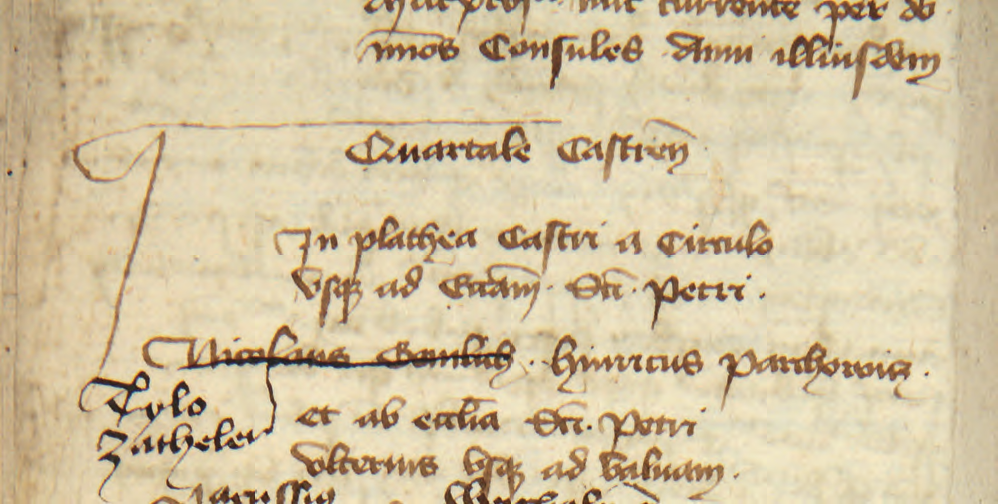 nunc currente per do
minos Consules Anni illiusdem
Quartale Castreñ
In plathea Castri a Circulo
vsqꝫ ad Eccam̄ Sti Petri .
Nicolaus · Hinricus Parchowicz .
Tylo
Zatheler et ab ecclia Sti Petri
vlterius vsqꝫ ad valuam .